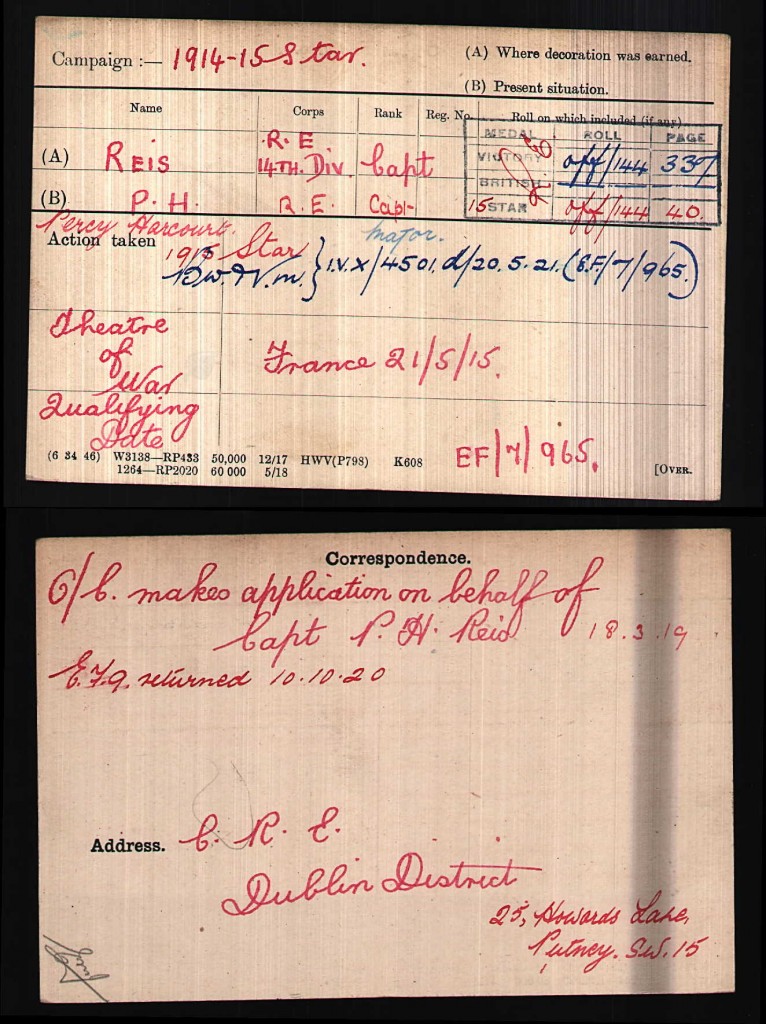 Campaign :— 1914-15 Star.
(A) Where decoration was earned.
(B) Present situation.
Name Corps Rank Reg. No. Roll on which included (if any).
MEDAL ROLL PAGE
(A) REIS R.E 14TH. Div. Capt
VICTORY off/144 337
BRITISH
(B) P. H. R.E. Capt
15 STAR off/144 40.
Percy Harcourt. Major.
Action taken 1915 Star
B.W. & V.m. } I.V.X/4501.d/20.5.21. (E.F/7/965.)
Theatre
of
War France 21/5/15.
Qualifying
Date
EF/7/965.
(6 34 46) W3138—RP433 50,000 12/17 HWV(P798) K608
1264—RP2020 60 000 5/18
[OVER.
Correspondence.
O/C. makes application on behalf of
Capt P. H. Reis 18.3.19
E.F.9. returned 10.10.20
Address. C. R. E.
Dublin District
25, Howards Lane,
Putney. S.W. 15